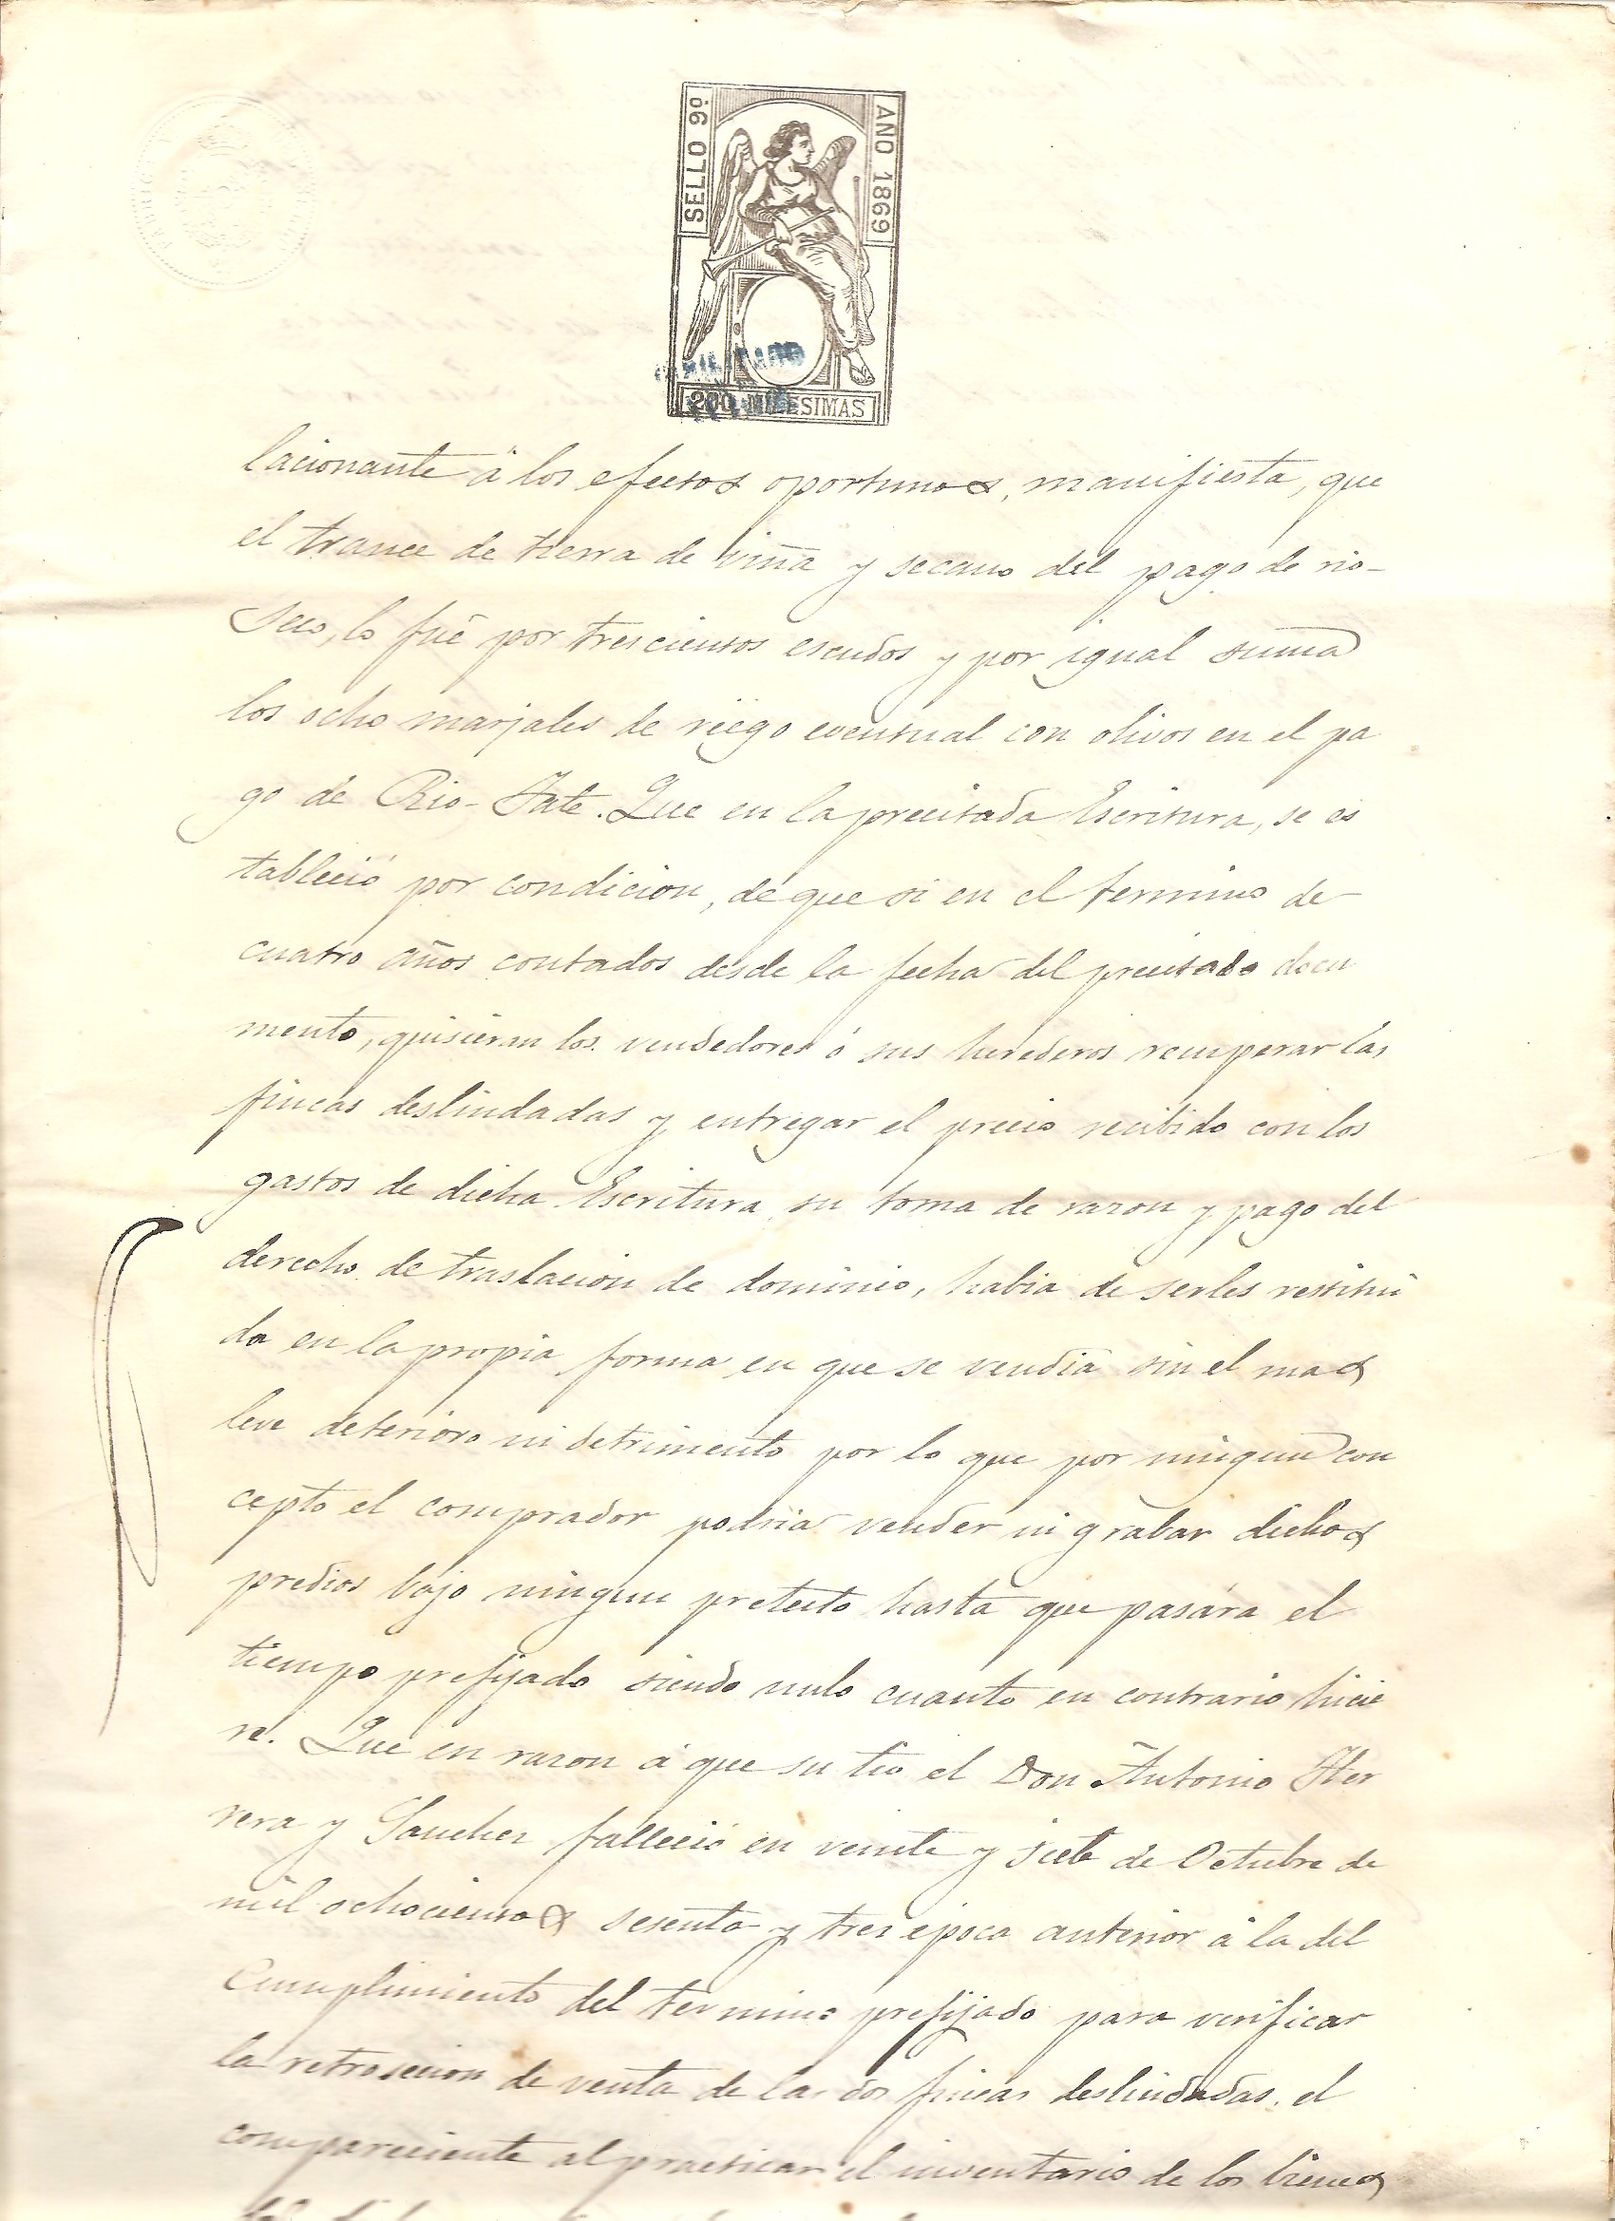 SELLO 9º
AÑO 1869
200 MILESIMAS
lacionante á los efectos oportunos, manifiesta, que
el trance de tierra de viña y secano del pago de rio-
seco, lo fué por trescientos escudos y por igual suma
los ocho marjales de riego eventual con olivos en el pa
go de Rio-Jate. Que en la precitada Escritura, se es
tableció por condicion, de que si en el termino de
cuatro años contados desde la fecha del precitado docu
mento, quisieran los vendedores ó sus herederos recuperar las
fincas deslindadas y entregar el precio recibido con los
gastos de dicha Escritura, su toma de razon y pago del
derecho de traslacion de dominio, habia de serles restitui
da en la propia forma en que se vendia sin el mas
leve deterioro ni detrimento por lo que por ningun con
cepto el comprador podria vender ni grabar dichos
predios bajo ningun pretesto hasta que pasára el
tiempo prefijado siendo nulo cuanto en contrario hicie
re. Que en razon á que su tio el Don Antonio Her
rera y Sanchez falleció en veinte y siete de Octubre de
mil ochocientos sesenta y tres época anterior á la del
Cumplimiento del termino prefijado para verificar
la retrosecion de venta de las dos fincas deslindadas, el
compareciente al practicar el inventario de los bienes